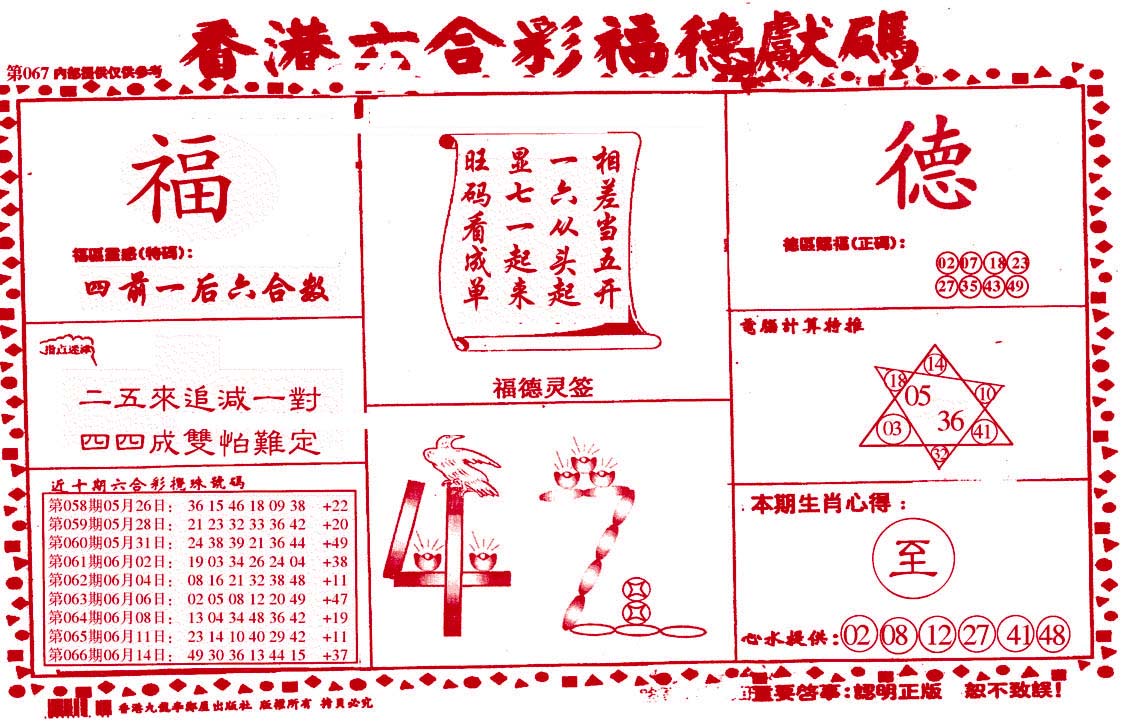 香港六合彩福德獻碼
第067 内部提供仅供参考
福
福區靈感(特碼):
四前一后六合数
指点迷津
二五來追減一對
四四成雙怕難定
近十期六合彩攪珠號碼
第058期05月26日: 36 15 46 18 09 38 +22
第059期05月28日: 21 23 32 33 36 42 +20
第060期05月31日: 24 38 39 21 36 44 +49
第061期06月02日: 19 03 34 26 24 04 +38
第062期06月04日: 08 16 21 32 38 48 +11
第063期06月06日: 02 05 08 12 20 49 +47
第064期06月08日: 13 04 34 48 36 42 +19
第065期06月11日: 23 14 10 40 29 42 +11
第066期06月14日: 49 30 36 13 44 15 +37
相差当五开
一六从头起
显七一起来
旺码看成单
福德灵签
42
德
德區賜福(正碼):
02 07 18 23
27 35 43 49
電腦計算特推
14
18
05
10
03
36
41
32
本期生肖心得:
至
心水提供: 02 08 12 27 41 48
重要啓事:認明正版 恕不致誤!
香港九龍半鄰屋出版社 版權所有 拷貝必究